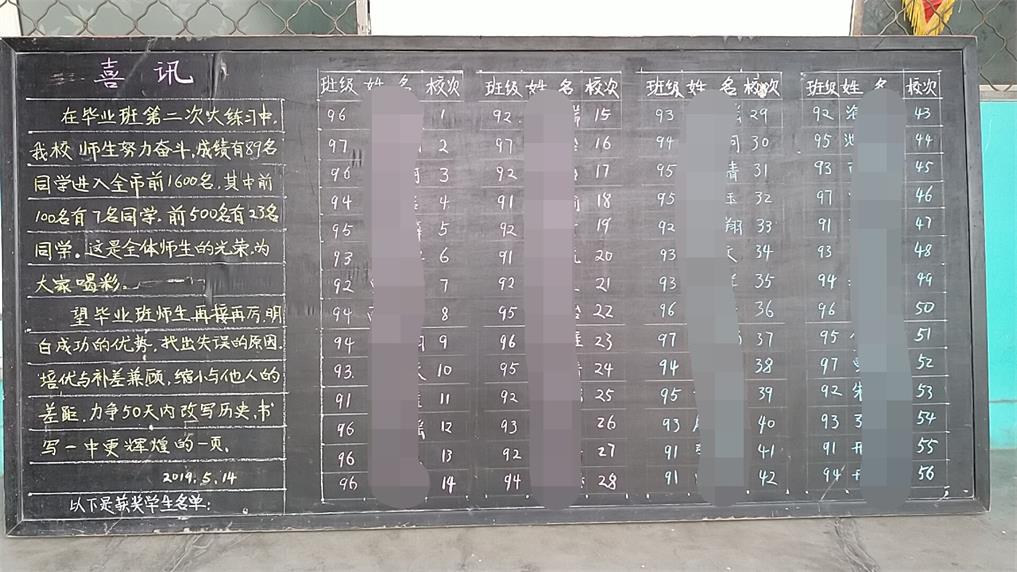 喜讯
在毕业班第二次大练习中,
我校师生努力奋斗,成绩有89名
同学进入全市前1600名,其中前
100名有7名同学.前500名有23名
同学。这是全体师生的光荣.为
大家喝彩.
望毕业班师生再接再厉,明
白成功的优势,找出失误的原因.
培优与补差兼顾,缩小与他人的
差距,力争50天内改写历史,书
写一中更辉煌的一页.
2019.5.14
以下是获奖学生名单:
班级 姓名 校次
96 1
97 2
96 3
94 4
95 5
93 6
92 7
94 8
94 9
93. 10
91 11
96 12
96 13
96 14
班级 姓名 校次
92. 15
97 16
92 17
91 18
92 19
91 20
92 21
95 22
96 23
95 24
92 25
93 26
92 27
94 28
班级 姓名 校次
93 29
94 30
95 清 31
92 32
92 翔 33
93 34
93 35
96 36
97 37
94 38
95 39
93 40
91 41
91 42
班级 姓名 校次
92 43
95 44
93 45
97 46
91 47
93 48
94 49
96 50
95 51
97 52
92 53
93 54
91 55
94 56